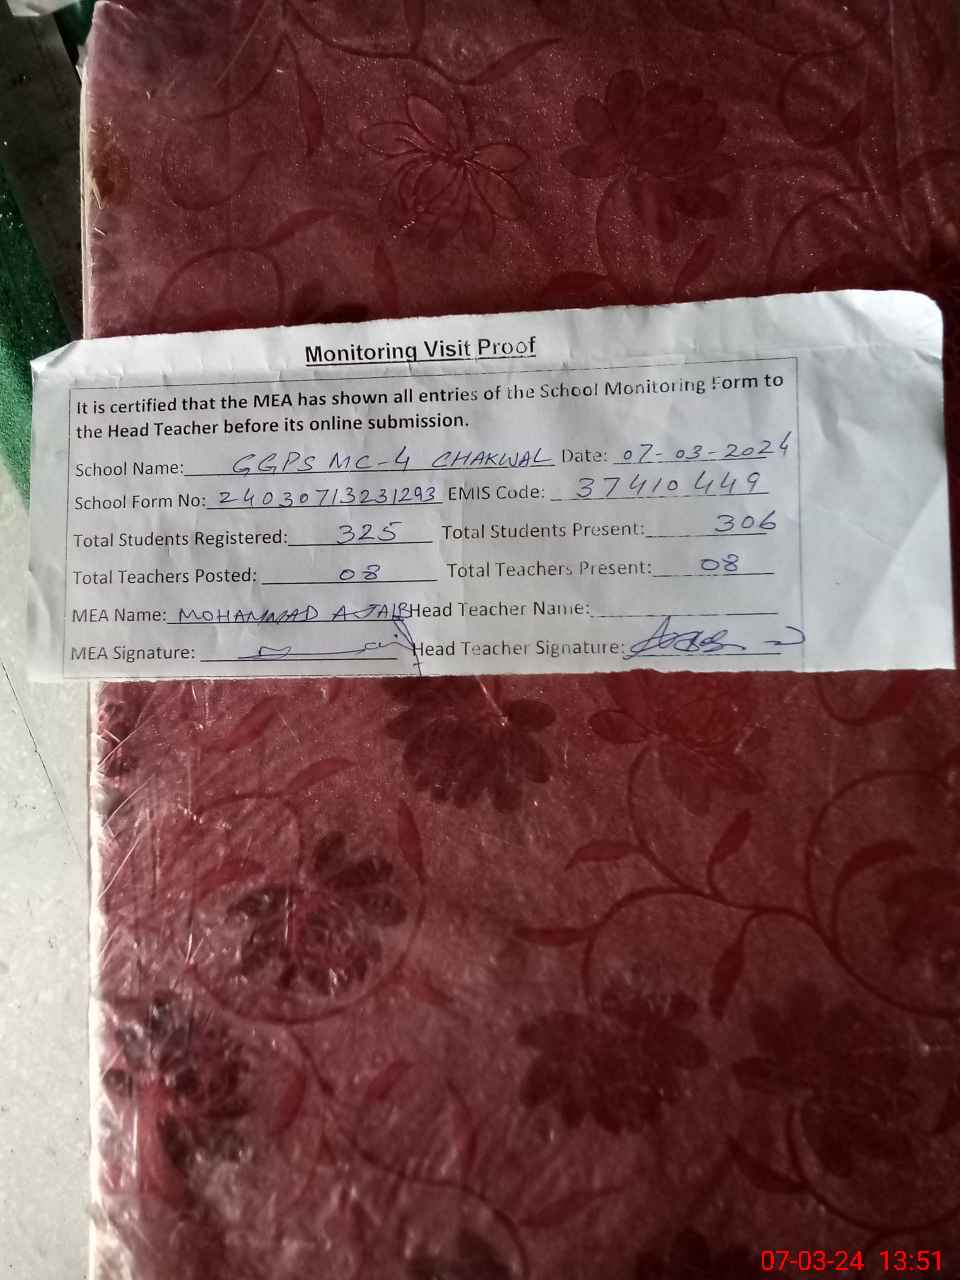 Monitoring Visit Proof
It is certified that the MEA has shown all entries of the School Monitoring Form to
the Head Teacher before its online submission.
School Name: GGPS MC-4 CHAKWAL Date: 07-03-2024
School Form No: 24030713231293 EMIS Code: 37410449
Total Students Registered: 325 Total Students Present: 306
Total Teachers Posted: 08 Total Teachers Present: 08
MEA Name: MOHAMMAD AJAIB Head Teacher Name:
MEA Signature: Head Teacher Signature:
07-03-24 13:51